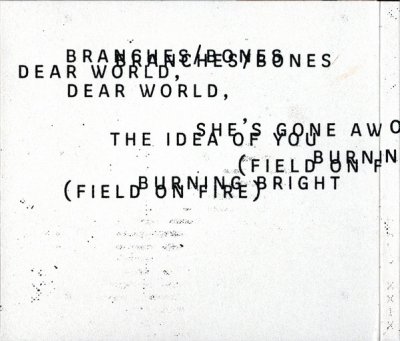 BRANCHES/BONES
BRANCHES/BONES
DEAR WORLD,
DEAR WORLD,
SHE'S GONE AWO
THE IDEA OF YOU
BURNIN
(FIELD ON F
BURNING BRIGHT
(FIELD ON FIRE)